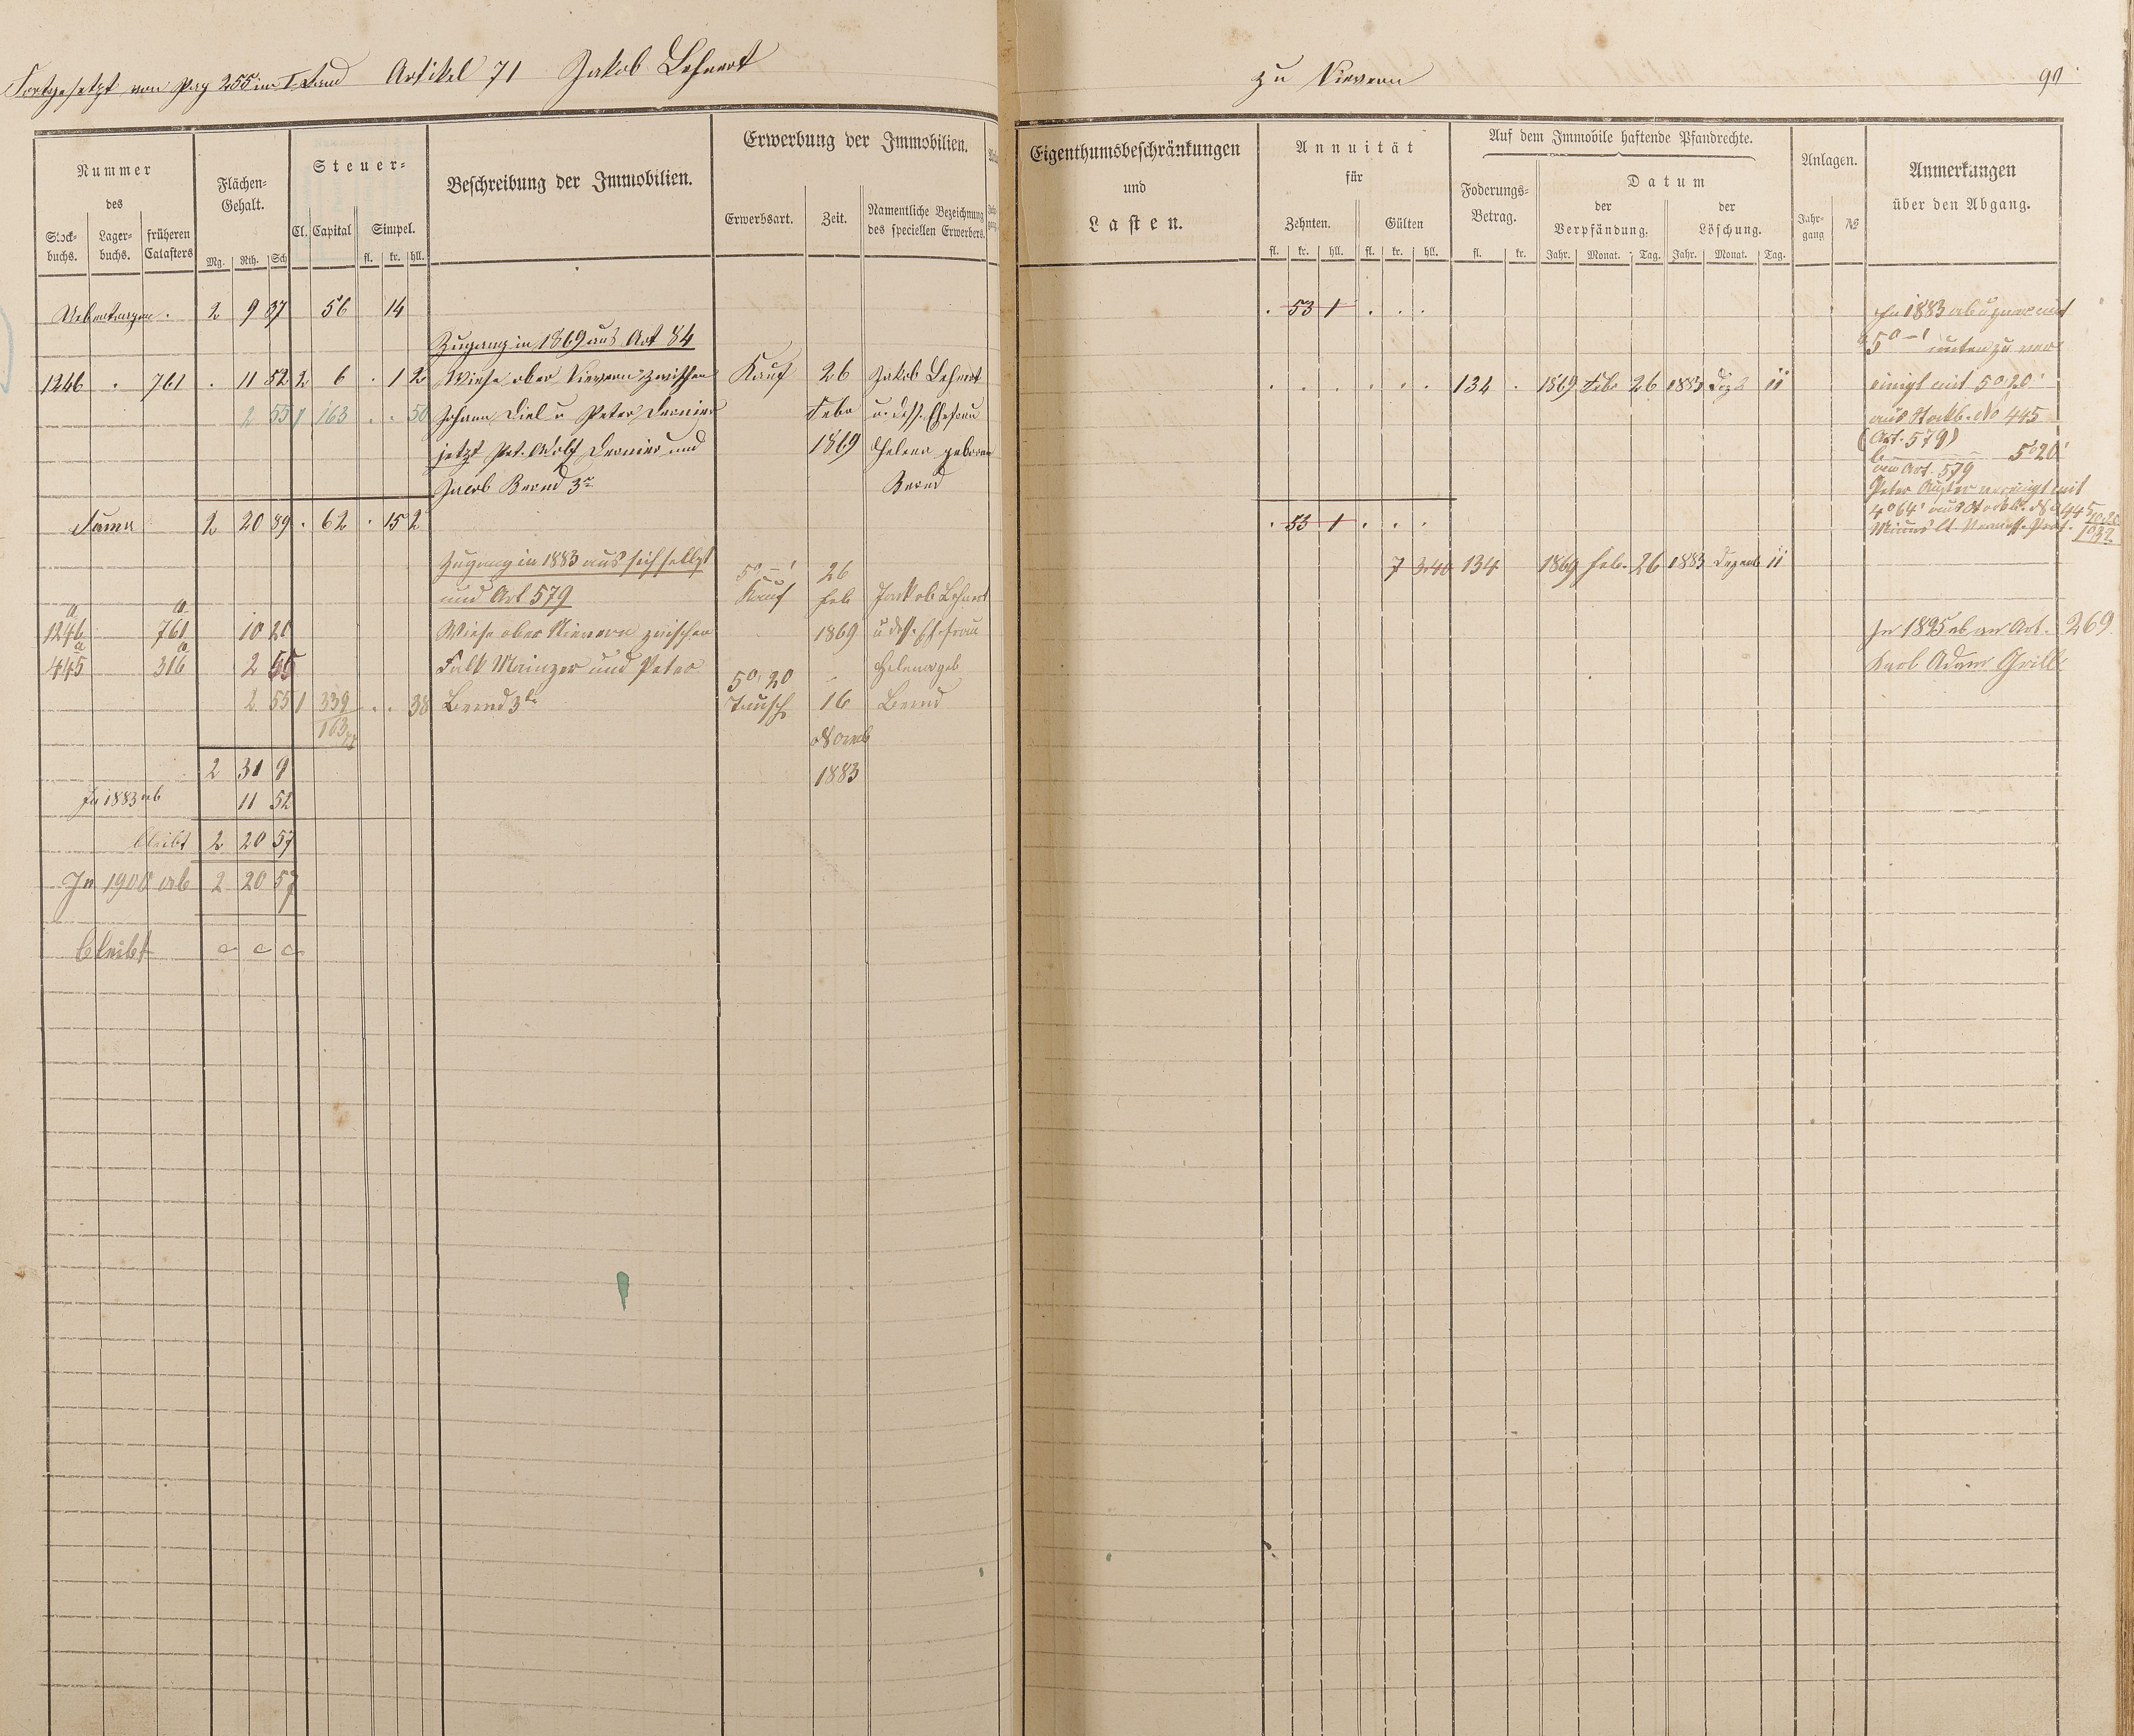 Fortgesetzt von Pag 255 im I Band Artikel 71 Jakob Lehnert
zu Nievern 90
Nummer
des
Stock-
buchs.
Lager-
buchs.
früheren
Catasters
Flächen-
Gehalt.
Mg. Rth. Sch
Steuer-
Cl. Capital Simpel.
fl. kr. hll.
Beschreibung der Immobilien.
Erwerbung der Immobilien.
Erwerbsart. Zeit. Namentliche Bezeichnung
des speciellen Erwerbers.
Eigenthumsbeschränkungen
und
Lasten.
Annuität
für
Zehnten. Gülten
fl. kr. hll. fl. kr. hll.
Auf dem Immobile haftende Pfandrechte.
Foderungs-
Betrag.
fl. kr.
Datum
der
Verpfändung.
der
Löschung.
Jahr. Monat. Tag. Jahr. Monat. Tag.
Anlagen.
Jahr-
gang
Anmerkungen
über den Abgang.
Uebertragen . 2 9 37 56 14 . 53 1 . . .
Zugang in 1869 aus Art 84
1246 . 761 . 11 52 2 6 . 1 2 Wiese ober Nievern zwischen Kauf 26 Jakob Lehnert . . . . . . 134 . 1869 Febr 26 1883 11
2 55 1 163 . . 50 Johann Diel u Peter Febr u. dess. Ehefrau
jetzt Pet. und 1869 Helena geborene
Jacob Bernd 3r Bernd
In 1883 ab
5° - ' unten zu ver
einigt mit 5° 20'
aus Stockb. No 445
(Art. 579)
5° 20'
Art. 579
Summa 2 20 89 . 62 . 15 2 . 53 1 . . .
Zugang in 1883 aus sich selbst 5° - ' 26 7 3.40 134 1869 Feb. 26 1883 Dezemb 11
und Art 579 Kauf Feb Jakob Lehnert
a a
1246 761 10 20 Wiese ober Nievern zwischen 1869 u dess. Ehefrau
a a
445 316 2 55 Falk Mainzer und Peter 5° 20 Helena geb
2 55 1 339 . . 38 Bernd 3te Tausch 16 Bernd
163
Novemb
1883
In 1895 ab an Art. 269
Karb Adam Grill
2 31 9
In 1883 ab 11 52
bleibt 2 20 57
In 1900 ab 2 20 57
bleibt